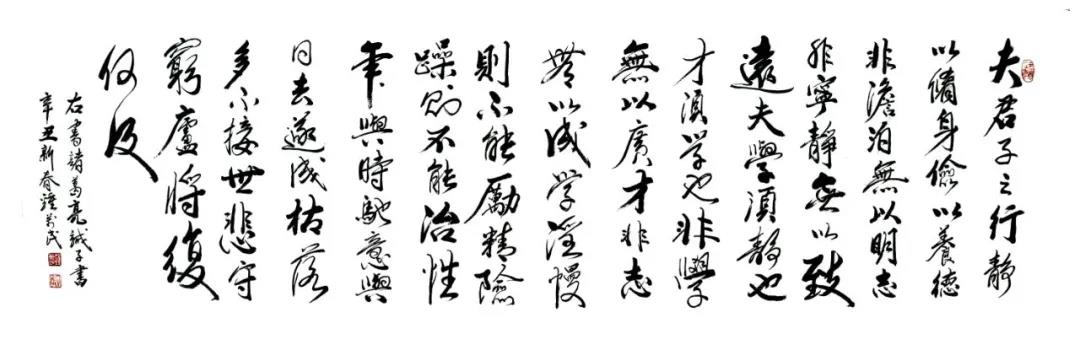 夫君子之行靜
以脩身儉以養德
非澹泊無以明志
非寧靜無以致
遠夫學須靜也
才須學也非學
無以廣才非志
無以成學淫慢
則不能勵精險
躁則不能治性
年與時馳意與
日去遂成枯落
多不接世悲守
窮廬將復
何及
右書諸葛亮誡子書
辛丑新春